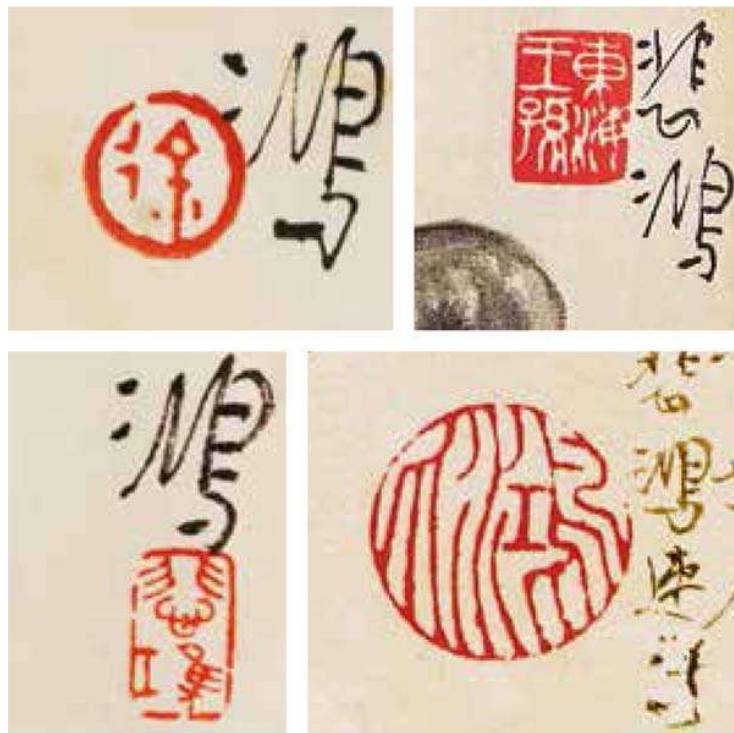 鴻
徐
悲鴻
東海王孫
鴻
悲鴻
悲鴻